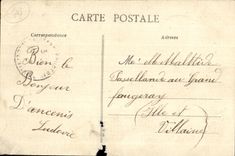 CARTE POSTALE
Correspondance
Adresse
Bien le
Bonjour
D'ancenis
Ludovic
au Grand
fougeray
Ille et
Vilaine